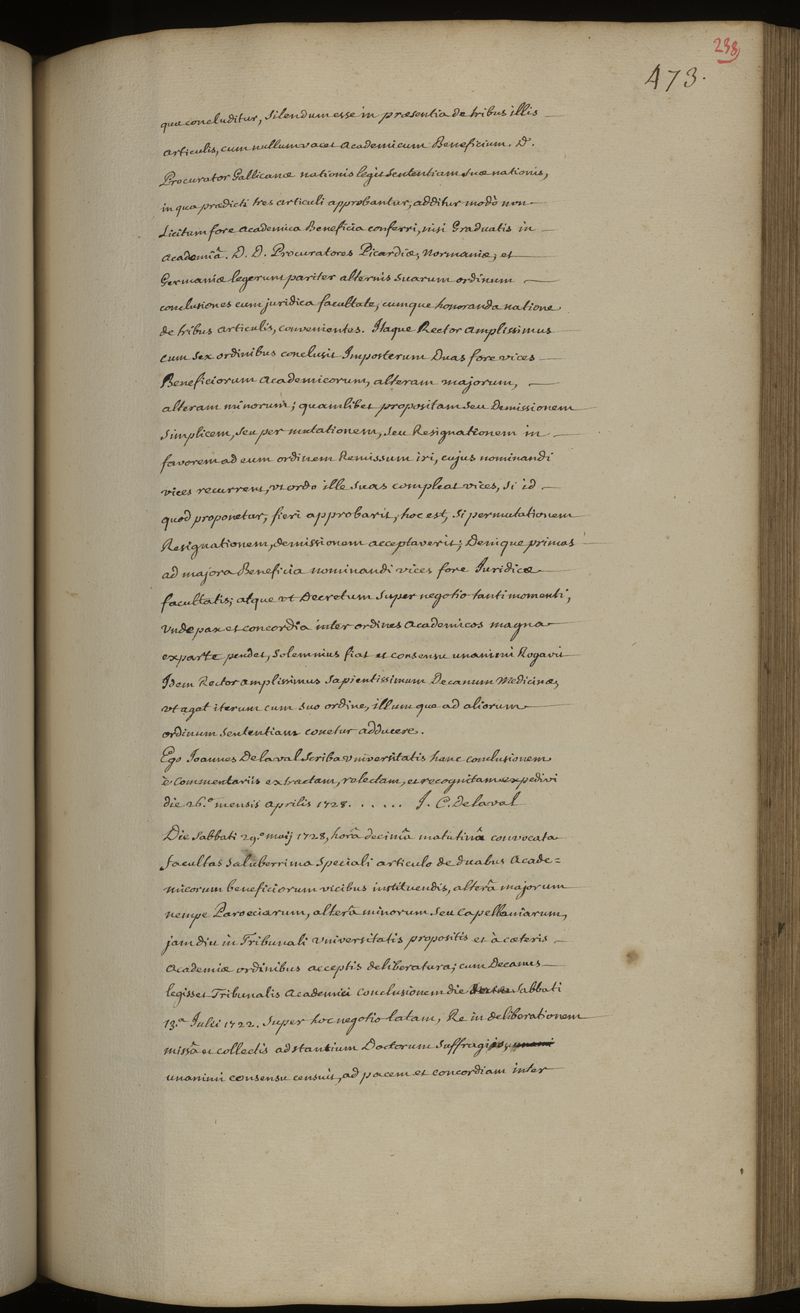 238
473.
qua concluditur, silendum esse in præsentia de tribus illis
articulis, cum nullum vacet academicum Beneficium. D.
Procurator Gallicanæ nationis legit sententiam suæ nationis,
in qua prædicti tres articuli approbantur, additur modò non
Licitum fore academica Beneficia conferri, nisi Graduatis in
academiâ. D. D. Procuratores Picardiæ, Normaniæ, et
Germaniæ legerunt pariter alternis suarum ordinum
conclusiones cum juridica facultate, cumque honoranda natione
de tribus articulis, convenientes. Itaque Rector amplissimus
cum sex ordinibus conclusit Imposterum Duas fore vices
Beneficiorum academicorum, alteram majorum,
alteram minorum; quamlibet propositam seu Demissionem
simplicem, seu per mutationem, seu Resignationem in
favorem ad eum ordinem Remissum iri, cujus nominandi
vices recurrent, vt ordo ille suas compleat vices, si id
quod proponetur, fieri approbarit, hoc est, si permutationem
Resignationem, demissionem acceptaverit; Denique primas
ad majora Beneficia nominandi vices fore Juridicæ
facultatis; atque vt Decretum super negotio tanti momenti,
vnde pax et concordia inter ordines academicos magna
ex parte pendet, solemnius fiat et consensu unanimi Rogavit
Idem Rector amplissimus sapientissimum Decanum Medicinæ,
vt agat iterum cum suo ordine, illum que ad aliorum
ordinum sententiam conetur adducere.
Ego Joannes Delaval Scriba vniversitatis hanc conclusionem
è Commentariis extractam, relectam, et recognitam expedivi
die 26.º mensis aprilis 1728. . . . . . J. C. Delaval
Die Sabbati 29.º maij 1728, horâ decimâ matutinâ convocata
facultas saluberrima speciali articulo de duabus Acade=
micorum beneficiorum vicibus instituendis, alterâ majorum
nempe Paroeciarum, alterâ minorum seu Capellaniarum,
jamdiu in Tribunali vniversitatis propositis et à cæteris
academiæ ordinibus acceptis deliberatura; cum Decanus
legisset Tribunalis academici conclusionem die Sabbati
13.a Julii 1722. super hoc negotio latam, Re in deliberationem
missâ et collectis adstantium Doctorum suffragiis,
unanimi consensu censuit, ad pacem et concordiam inter